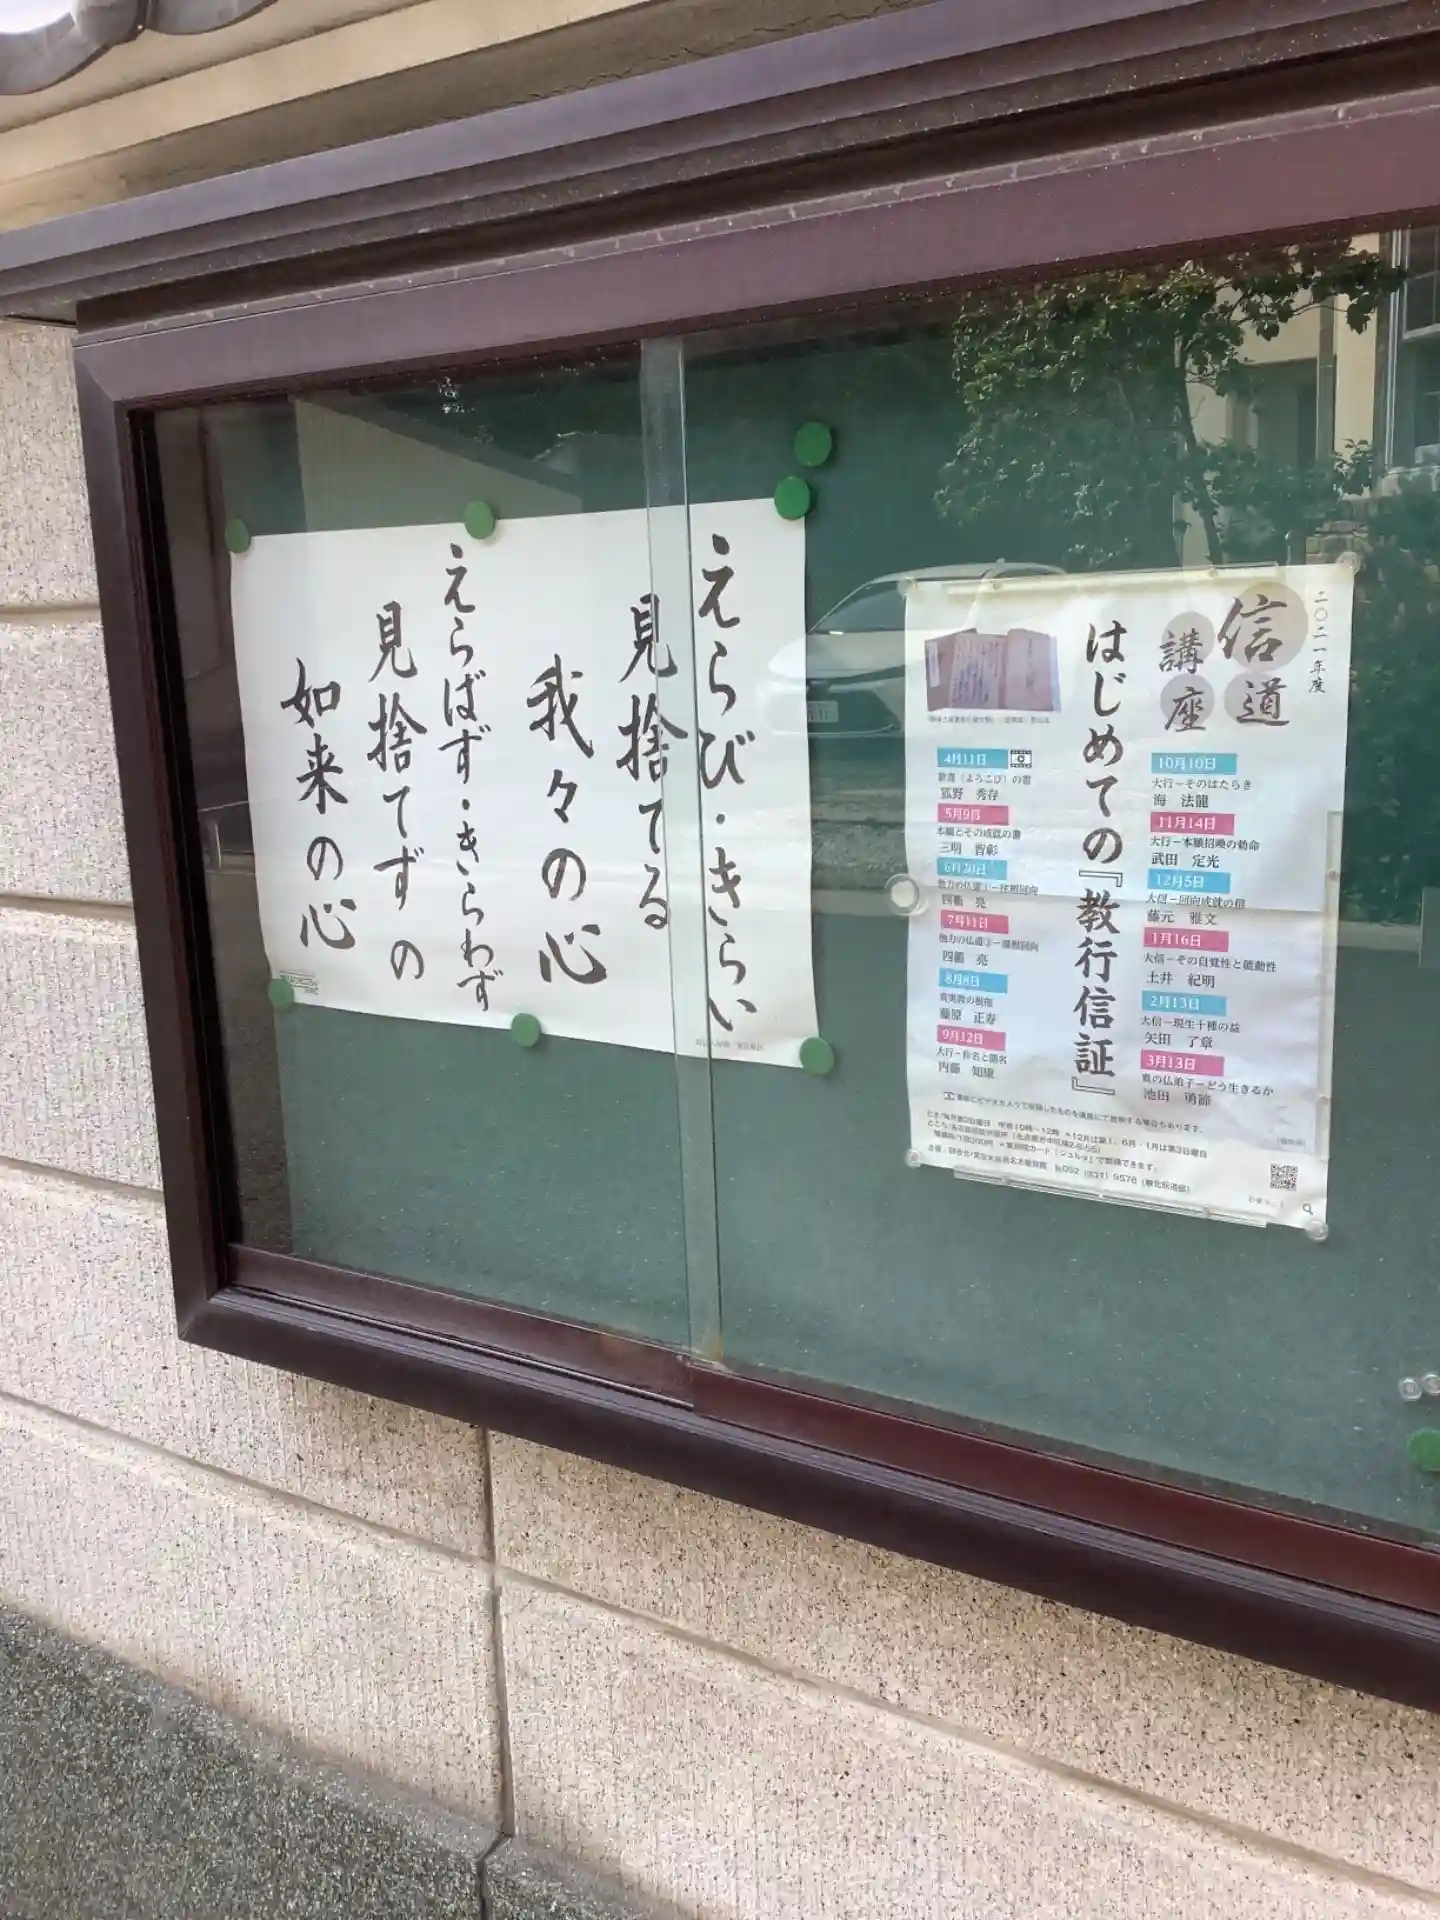 えらび・きらい
見捨てる
我々の心
えらばず・きらわず
見捨てずの
如来の心
二〇二一年度
信道
講座
はじめての『教行信証』
4月11日
歓喜（よろこび）の書
狐野 秀存
5月9日
本願とその成就の書
三明 智彰
6月20日
他力の仏道①－往相回向
四衢 亮
7月11日
他力の仏道②－還相回向
四衢 亮
8月8日
真実教の根拠
藤原 正寿
9月12日
大行－称名と聞名
内藤 知康
10月10日
大行－そのはたらき
海 法龍
11月14日
大行－本願招喚の勅命
武田 定光
12月5日
大信－回向成就の信
藤元 雅文
1月16日
大信－その自覚性と能動性
土井 紀明
2月13日
大信－現生十種の益
矢田 了章
3月13日
真の仏弟子－どう生きるか
池田 勇諦
事前にビデオカメラで収録したものを講座にて放映する場合もあります。